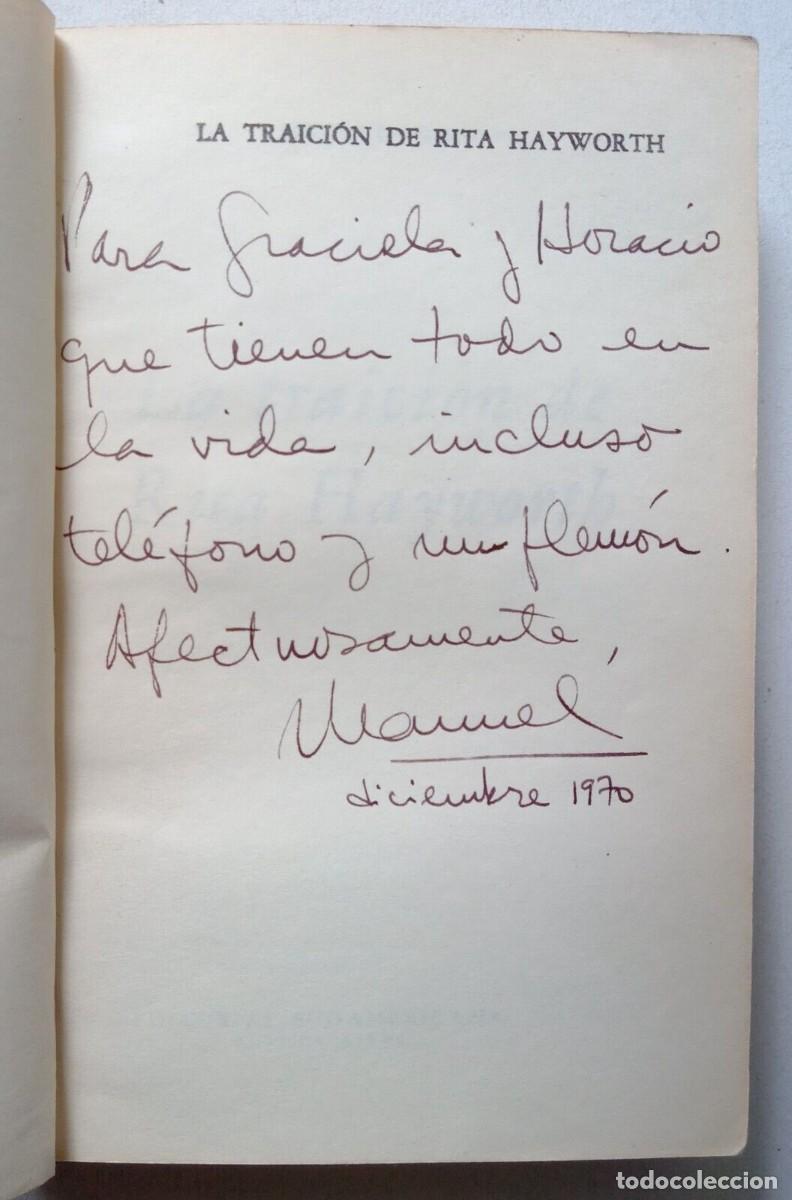 LA TRAICIÓN DE RITA HAYWORTH
Para Graciela y Horacio
que tienen todo en
la vida, incluso
teléfono y un flemón.
Afectuosamente,
Manuel
diciembre 1970
todocoleccion